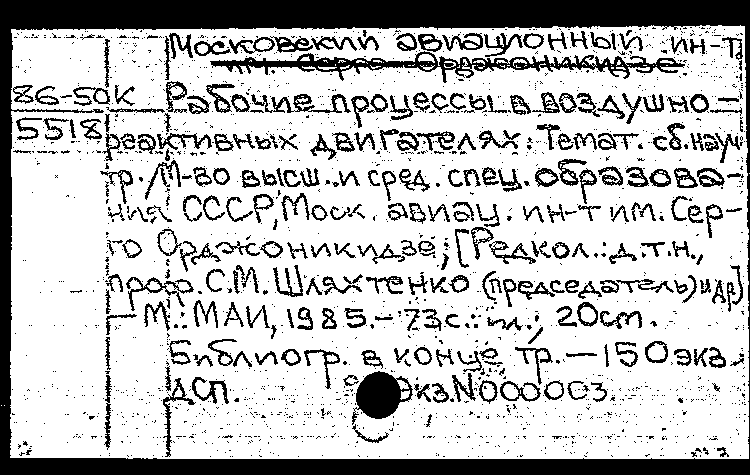 Московский авиационный ин-т
им. Серго Орджоникидзе
86-50К Рабочие процессы в воздушно-
5518 реактивных двигателях: Темат. сб. науч.
тр. / М-во высш. и сред. спец. образова-
ния СССР, Моск. авиац. ин-т им. Сер-
го Орджоникидзе; [Редкол.: д.т.н.,
проф. С.М. Шляхтенко (председатель) и др.]
— М.: МАИ, 1985. - 73 с.: ил.; 20 cm.
Библиогр. в конце тр. — 150 экз.
ДСП. Экз. N 000003.